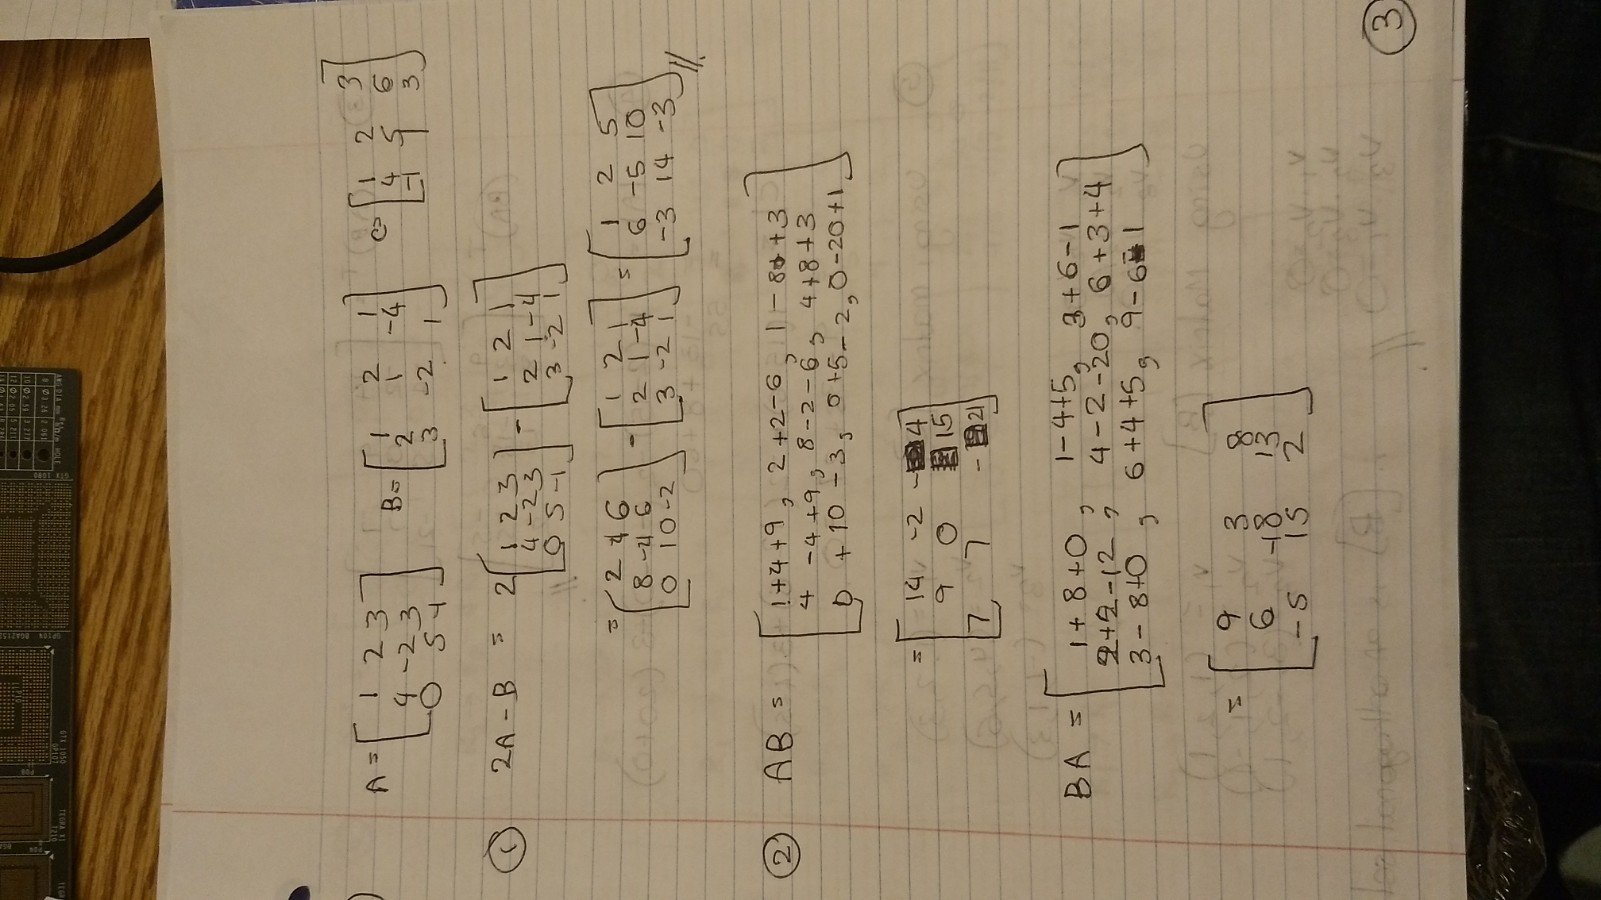 A = [1 2 3
4 -2 3
0 5 -1]
B = [1 2 1
2 1 -4
3 -2 1]
C = [1 2 3
4 5 6
-1 9 3]
① 2A - B = 2 [1 2 3
4 -2 3
0 5 -1] - [1 2 1
2 1 -4
3 -2 1]
= [2 4 6
8 -4 6
0 10 -2] - [1 2 1
2 1 -4
3 -2 1] = [1 2 5
6 -5 10
-3 14 -3] //
② AB = [1+4+9, 2+2-6, 1-8+3
4 -4+9, 8-2-6, 4+8+3
0 +10-3, 0+5-2, 0-20+1]
= [14 -2 -4
9 0 15
7 7 -21]
BA = [1+8+0, 1-4+5, 3+6-1
2+2-12, 4-2-20, 6+3+4
3-8+0, 6+4+5, 9-6-1]
= [9 3 8
6 -18 13
-5 15 2]
③